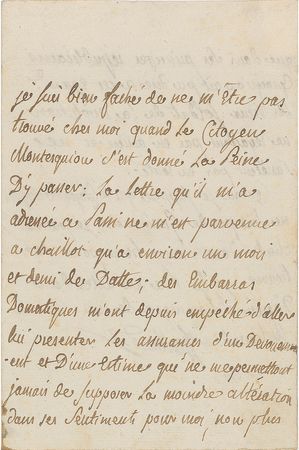 je suis bien faché de ne m'Etre pas
trouvé chez moi quand Le Citoyen
Montesquiou s'est donné La Peine
D'y passer; La Lettre qu'il m'a
adressé a Passi ne m'est parvenue
a chaillot qu'a environ un mois
et demi de Datte; des Embarras
Domestiques m'ont depuis empeché d'aller
lui presenter Les assurances d'un Devouem
-ent et D'une Estime qui ne me permettront
jamais de supposer La moindre altération
dans ses sentiments pour moi, non plus